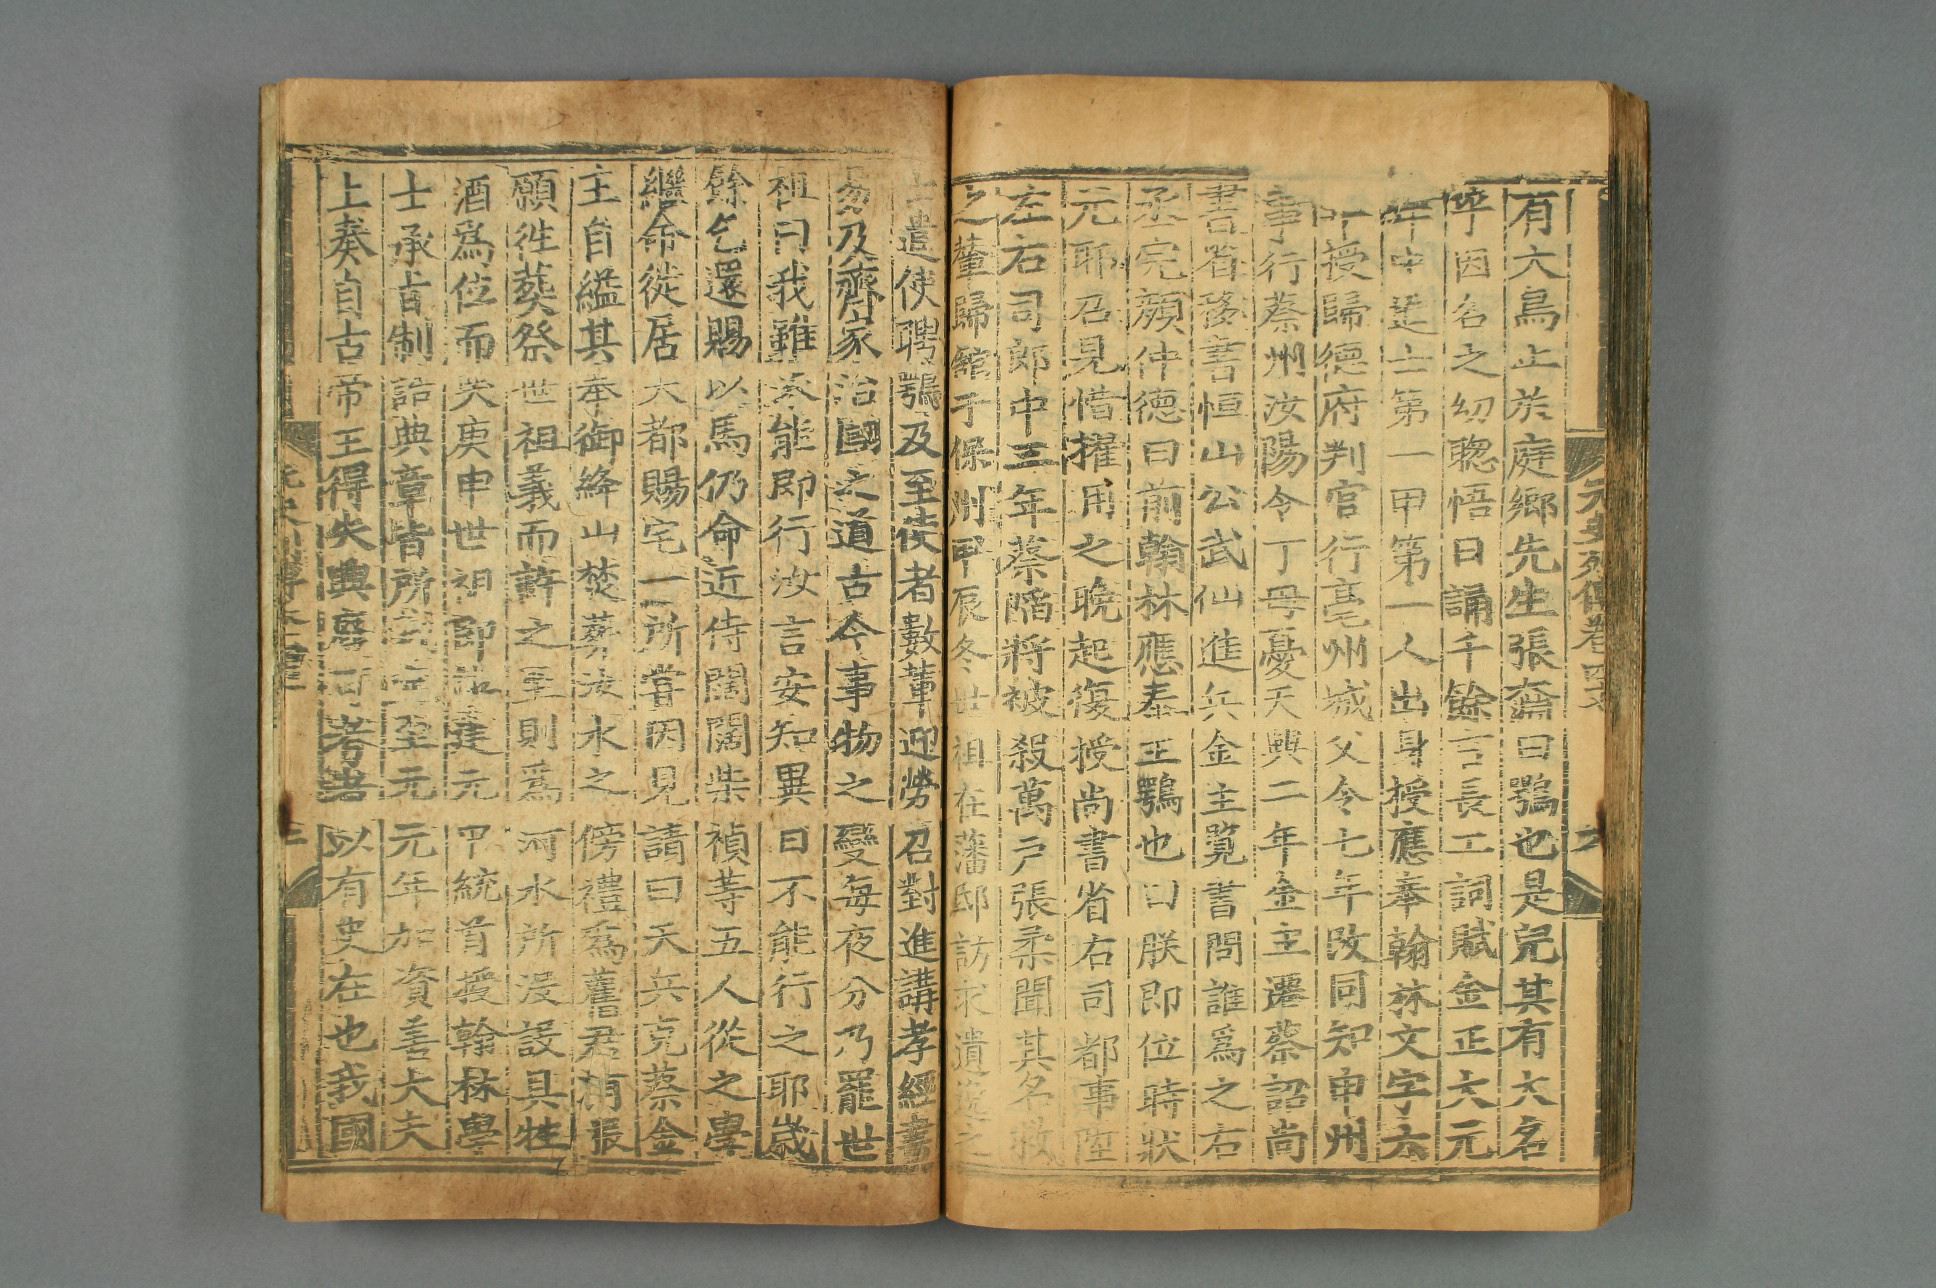 元史列傳卷四七
六
有大鳥止於庭鄉先生張齋曰鶚也是兒其有大名
乎因名之幼聰悟日誦千餘言長工詞賦金正大元
年中進士第一甲第一人出身授應奉翰林文字六
年授歸德府判官行亳州城父令七年改同知申州
事行蔡州汝陽令丁母憂天興二年金主遷蔡詔尚
書省移書恒山公武仙進兵金主覽書問誰爲之右
丞完顏仲德曰前翰林應奉王鶚也曰朕即位時狀
元耶召見惜擢用之晚起復授尚書省右司都事陞
左右司郎中三年蔡陷將被殺萬戶張柔聞其名救
之輦歸館于保州甲辰冬世祖在藩邸訪求遺逸之
士遣使聘鶚及至使者數輩迎勞召對進講孝經書
易及齊家治國之道古今事物之變每夜分乃罷世
祖曰我雖未能即行汝言安知異日不能行之耶歲
餘乞還賜以馬仍命近侍闊闊柴禎等五人從之學
繼命徙居大都賜宅一所嘗因見請曰天兵克蔡金
主自縊其奉御絳山焚葬汝水之傍禮爲舊君有服
願往葬祭世祖義而許之至則爲河水所沒設具牲
酒爲位而哭庚申世祖即位建元中統首授翰林學
士承旨制誥典章皆所裁定至元元年加資善大夫
上奏自古帝王得失興廢可考者以有史在也我國